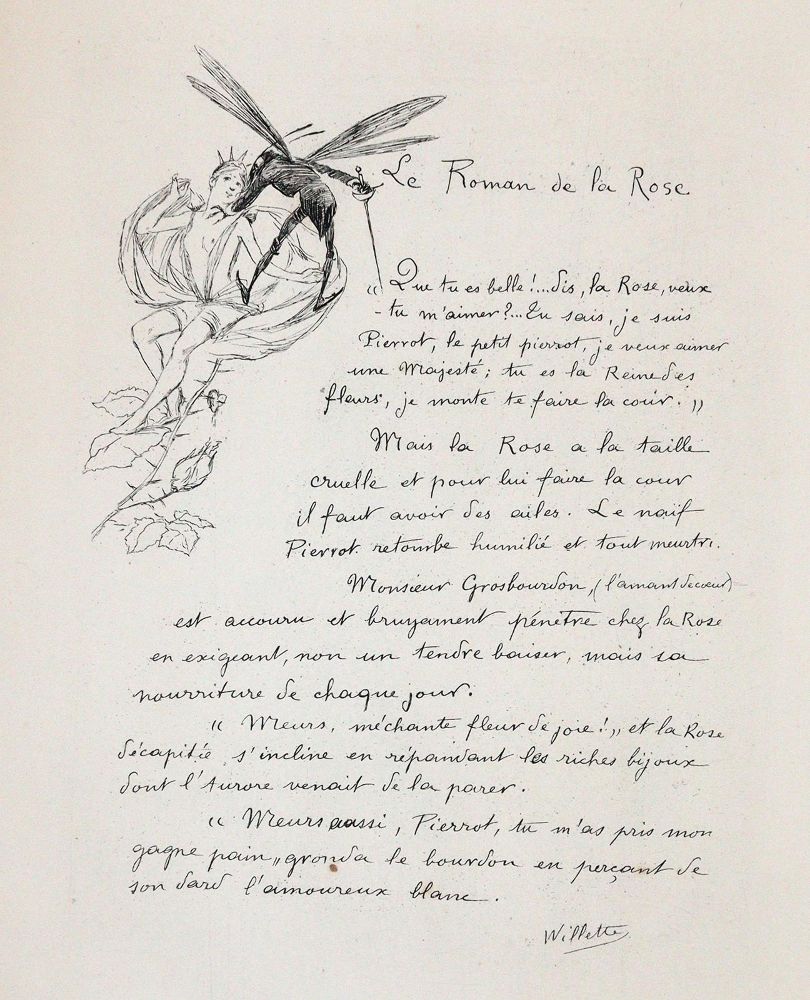 Le Roman de la Rose
« Que tu es belle !... Dis, la Rose, veux
- tu m'aimer ?... Tu sais, je suis
Pierrot, le petit pierrot, je veux aimer
une Majesté ; tu es la Reine des
fleurs, je monte te faire la cour. »
Mais la Rose a la taille
cruelle et pour lui faire la cour
il faut avoir des ailes. Le naïf
Pierrot retombe humilié et tout meurtri.
Monsieur Grosbourdon, (l'amant de cœur)
est accouru et bruyament pénètre chez la Rose
en exigeant, non un tendre baiser, mais sa
nourriture de chaque jour.
« Meurs, méchante fleur de joie ! » et la Rose
décapitée s'incline en répandant les riches bijoux
dont l'Aurore venait de la parer.
« Meurs aussi, Pierrot, tu m'as pris mon
gagne pain » gronda le bourdon en perçant de
son dard l'amoureux blanc.
Willette